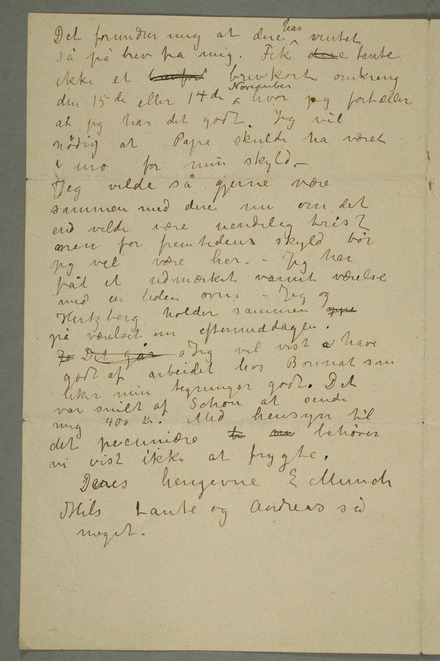 Det forundrer mig at dere har ventet
så på brev fra mig. Fik dere tante
ikke et brevkort omkring
den 15de eller 14de November hvor jeg fortæller
at jeg har det godt. Jeg vil
nødig at Papa skulde ha været
i uro for min skyld –
Jeg vilde så gjerne være
sammen med dere nu om det
end vilde være uendelig trist
men for fremtidens skyld bør
jeg vel være her. – Jeg har
fåt et udmærket varmt værelse
med en liden ovn. – Jeg og
Hertzberg holder sammen
på værelset om eftermiddagen.
Jo Det går Jeg vil vist have
godt af arbeidet hos Bonnat som
liker mine tegninger godt. Det
var snilt af Schou at sende
mig 400 kr. Med hensyn til
det pecuniære behøver
vi vist ikke at frygte.
Deres hengivne E Munch
Hils tante og Andreas så
meget.